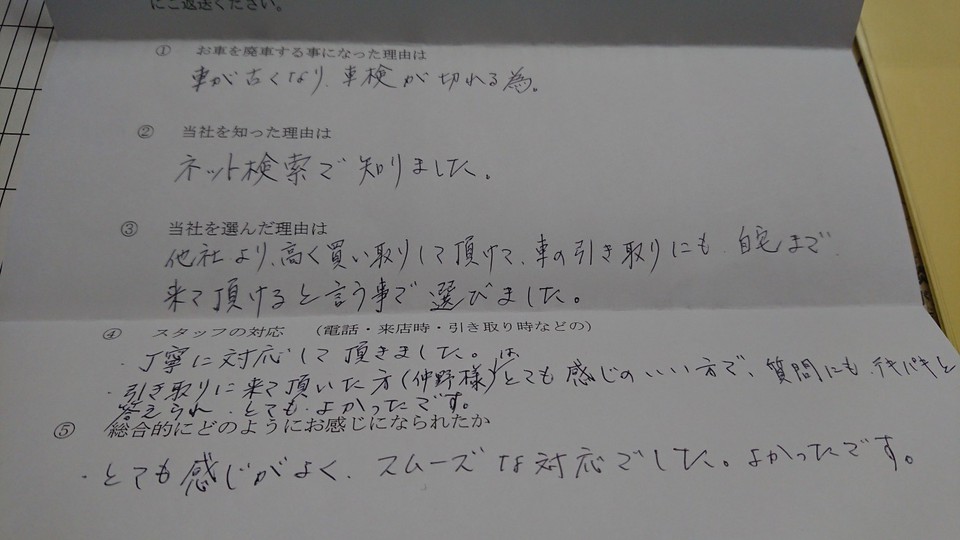 にご返送ください。
① お車を廃車する事になった理由は
車が古くなり、車検が切れる為。
② 当社を知った理由は
ネット検索で知りました。
③ 当社を選んだ理由は
他社より、高く買い取りして頂けて、車の引き取りにも、自宅まで
来て頂けると言う事で選びました。
④ スタッフの対応 (電話・来店時・引き取り時などの)
・丁寧に対応して頂きました。
・引き取りに来て頂いた方(仲野様)はとても感じのいい方で、質問にもテキパキと
答えられ、とても、よかったです。
⑤ 総合的にどのようにお感じになられたか
・とても感じがよく、スムーズな対応でした。よかったです。